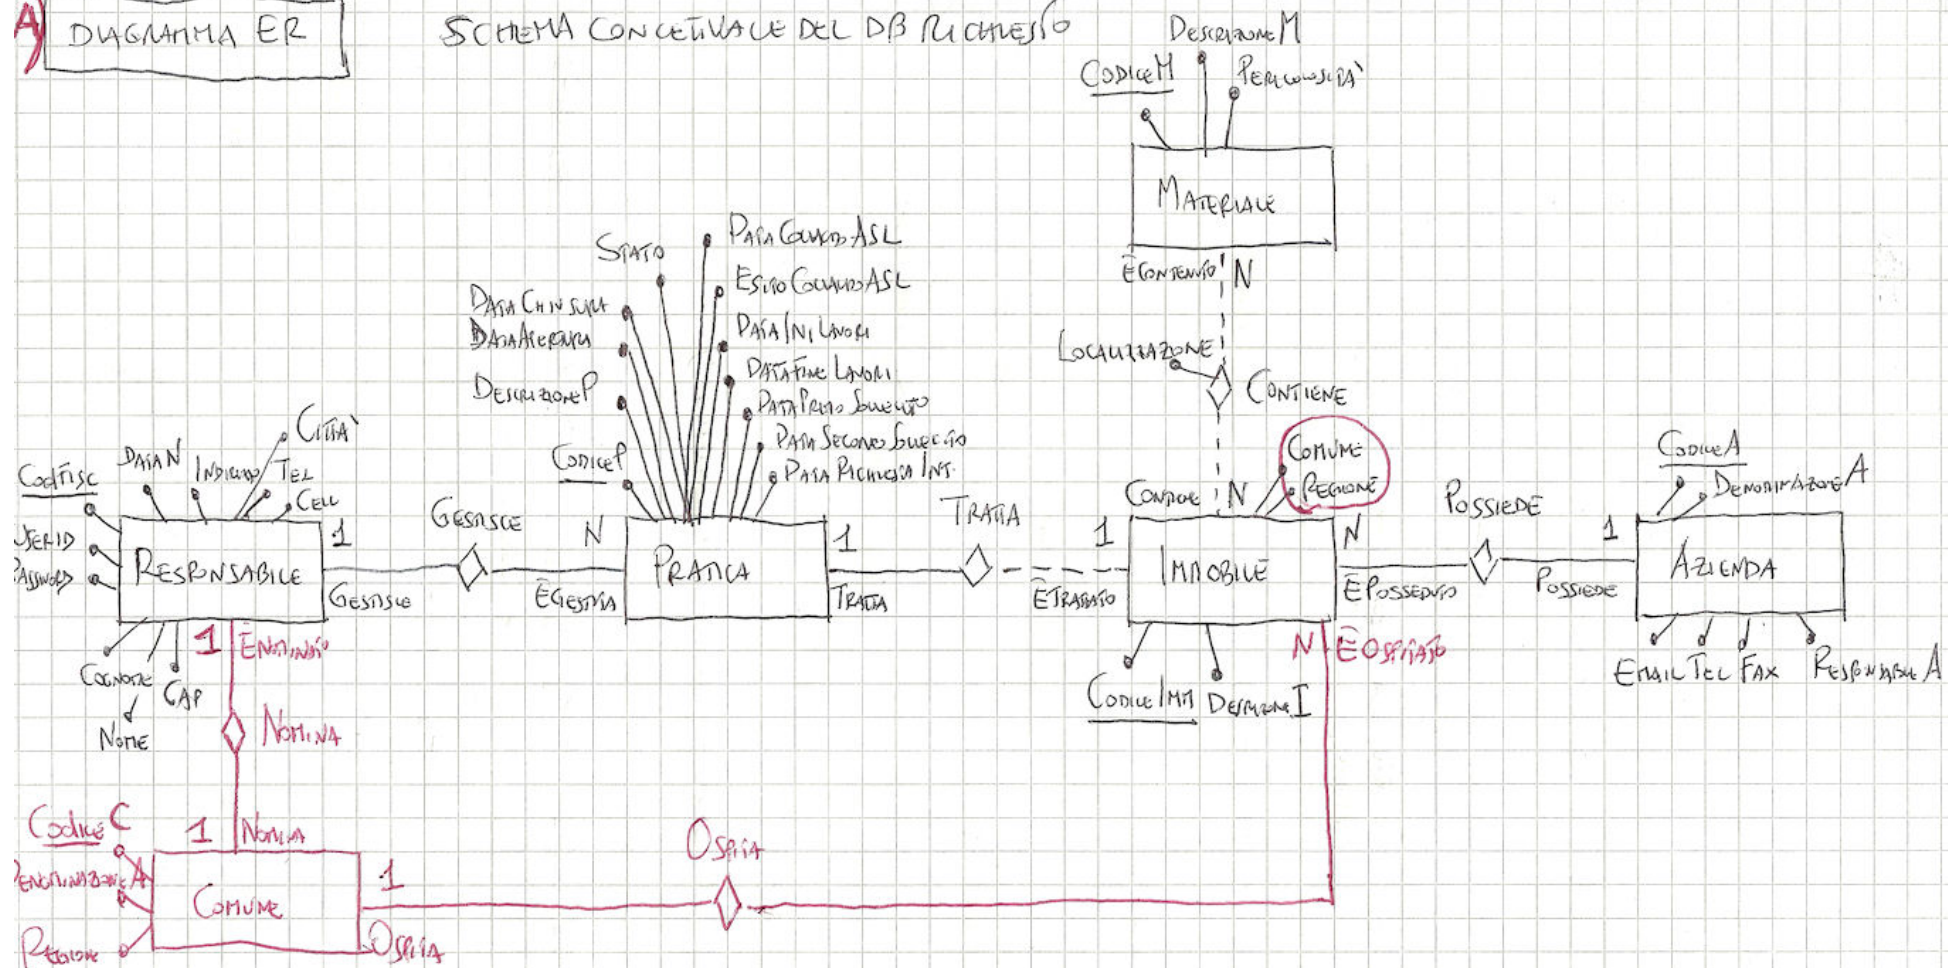 A)
DIAGRAMMA ER
SCHEMA CONCETTUALE DEL DB RICHIESTO
DESCRIZIONE M
CODICE M
PERICOLOSITÀ
MATERIALE
È CONTENUTO N
LOCALIZZAZIONE
CONTIENE
STATO
DATA COLLAUDO ASL
ESITO COLLAUDO ASL
DATA CHIUSURA
DATA APERTURA
DATA INI LAVORI
DATA FINE LAVORI
DESCRIZIONE P
DATA PRIMO SOLLECITO
DATA SECONDO SOLLECITO
CODICE P
DATA RICHIESTA INT.
CITTÀ
CODFISC
DATA N
INDIRIZZO
TEL
CELL
USERID
PASSWORD
RESPONSABILE
1
GESTISCE
GESTISCE
N
È GESTITA
PRATICA
1
TRATTA
TRATTA
1
È TRATTATO
CONTIENE N
COMUNE
REGIONE
IMMOBILE
N
È POSSEDUTO
POSSIEDE
1
POSSIEDE
CODICE A
DENOMINAZIONE A
AZIENDA
EMAIL TEL FAX RESPONSABILE A
COGNOME
NOME
CAP
1 È NOMINATO
NOMINA
1 NOMINA
CODICE IMM
DESCRIZIONE I
N È OSPITATO
CODICE C
DENOMINAZIONE A
REGIONE
COMUNE
1
OSPITA
OSPITA